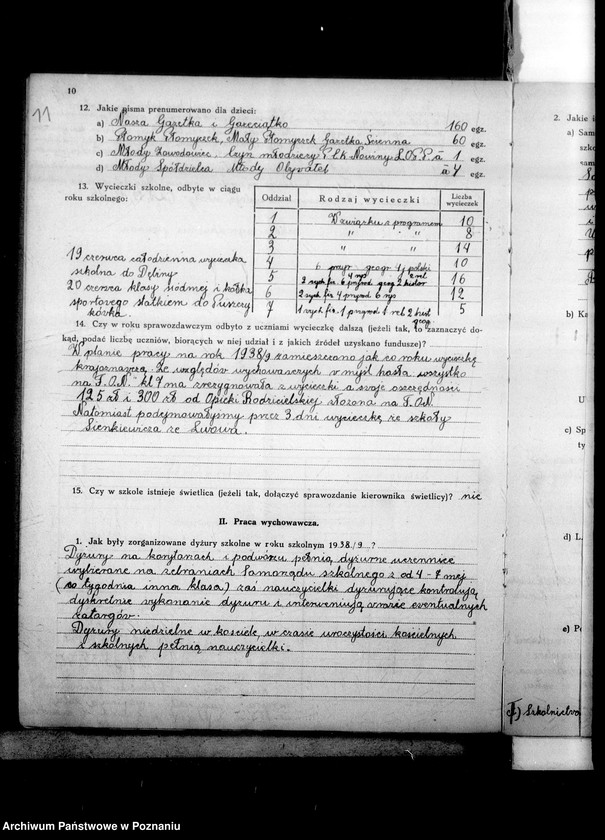 10
11
12. Jakie pisma prenumerowano dla dzieci:
a) Nasza Gazetka i Gazeciątko 160 egz.
b) Płomyk Płomyczek, Mały Płomyczek Gazetka Ścienna 60 egz.
c) Młody Zawodowiec, Czyn młodzieży P.C.K. Nowiny L.O.P.P. à 1 egz.
d) Młody Spółdzielca Młody Obywatel à 4 egz.
13. Wycieczki szkolne, odbyte w ciągu
roku szkolnego:
Oddział Rodzaj wycieczki Liczba wycieczek
1 W związku z programem 10
2 " " " 8
3 " " 14
4 6 przyr geogr 4 polski 10
5 16
6 2 rys 4 przyrod 6 rys 12
7 5
19 czerwca całodzienna wycieczka
szkolna do Dębiny
20 czerwca klasy siódmej i kółka
sportowego statkiem do Puszczy-
kówka.
14. Czy w roku sprawozdawczym odbyto z uczniami wycieczkę dalszą (jeżeli tak, to zaznaczyć do-
kąd, podać liczbę uczniów, biorących w niej udział i z jakich źródeł uzyskano fundusze)?
W planie pracy na rok 1938/9 zamieszczono jak co roku wycieczkę
krajoznawczą. Ze względów wychowawczych w myśl hasła wszystko
na F.O.N. kl 7 ma zrezygnowała z wycieczki a swoje oszczędności
125 zł i 300 zł od Opieki Rodzicielskiej złożona na F.O.N.
Natomiast podejmowałyśmy przez 3 dni wycieczkę ze szkoły
Sienkiewicza ze Lwowa.
15. Czy w szkole istnieje świetlica (jeżeli tak, dołączyć sprawozdanie kierownika świetlicy)? nie
II. Praca wychowawcza.
1. Jak były zorganizowane dyżury szkolne w roku szkolnym 1938/9 ?
Dyżury na korytarzach i podwórzu pełnią dyżurne uczennice
wybierane na zebraniach Samorządu szkolnego z od 4 - 7 mej
(co tygodnia inna klasa) zaś nauczycielki dyżurujące kontrolują
dyskretnie wykonanie dyżuru i interweniują w razie ewentualnych
zatargów.
Dyżury niedzielne w kościele, w czasie uroczystości kościelnych
i szkolnych pełnią nauczycielki.
2. Jakie i
a) Sam
szko
sam
b) Ka
U
c) Sp
ty
d) L.
e) Po
f) Szkolnictwo
Archiwum Państwowe w Poznaniu